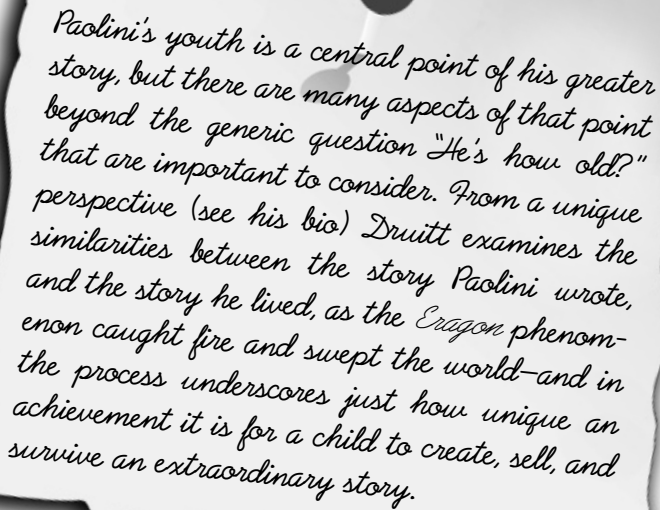 Paolini's youth is a central point of his greater
story, but there are many aspects of that point
beyond the generic question "He's how old?"
that are important to consider. From a unique
perspective (see his bio) Druitt examines the
similarities between the story Paolini wrote,
and the story he lived, as the Eragon phenom-
enon caught fire and swept the world—and in
the process underscores just how unique an
achievement it is for a child to create, sell, and
survive an extraordinary story.